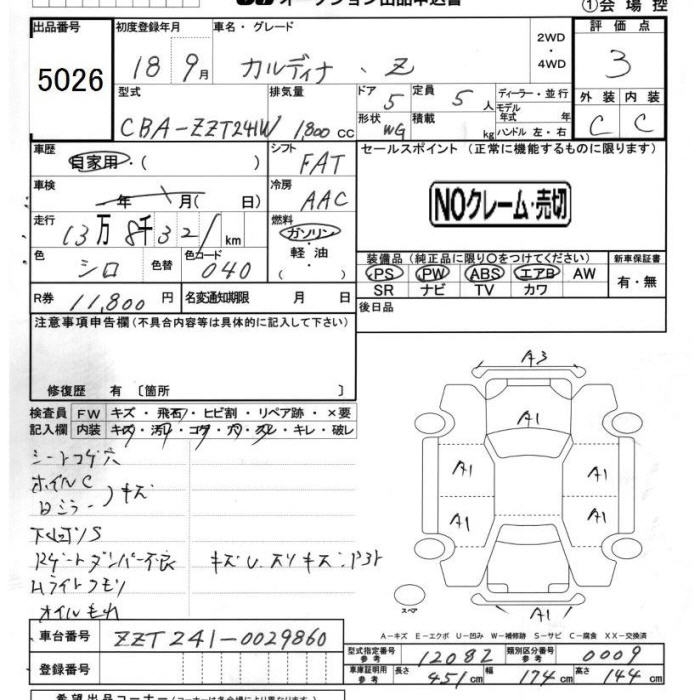 オークション出品申込書 ①会場控
出品番号 初度登録年月 車名・グレード 2WD・4WD 評価点
5026 18 9月 カルディナ Z 3
型式 排気量 ドア 定員 ディーラー・並行 外装 内装
CBA-ZZT241W 1,800 cc 5 5人 モデル年式 年 C C
形状 積載 ハンドル 左・右
WG kg
車歴 シフト セールスポイント (正常に機能するものに限ります)
自家用・( ) FAT
車検 冷房
年 月( 日) AAC NOクレーム・売切
走行 燃料
13万8千321km ガソリン・軽油・( )
色 色替 色コード 装備品(純正品に限り○をつけてください) 新車保証書
シロ 040 PS PW ABS エアB AW 有・無
R券 11,800円 名変通知期限 月 日 SR ナビ TV カワ
注意事項申告欄(不具合内容等は具体的に記入して下さい) 後日品
修復歴 有 〔箇所 〕
検査員 FW キズ・飛石・ヒビ割・リペア跡・×要
記入欄 内装 キズ・汚レ・コゲ・穴・スレ・キレ・破レ
シートコゲ穴
ホイルC
キズ
下回りS
Rゲートダンパー不良
Hライトクモリ
オイルもれ
A3
A1
A1 A1
A1 A1
A1
スペア
A-キズ E-エクボ U-凹み W-補修跡 S-サビ C-腐食 XX-交換済
車台番号 ZZT241-0029860
型式指定番号 参考 12082 類別区分番号 参考 0009
登録番号
車庫証明用 参考 長さ 451cm 幅 174cm 高さ 144cm
希望出品コーナー